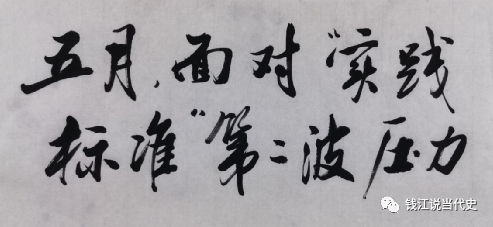 五月,面对“实践
标准”第二波压力
钱江说当代史